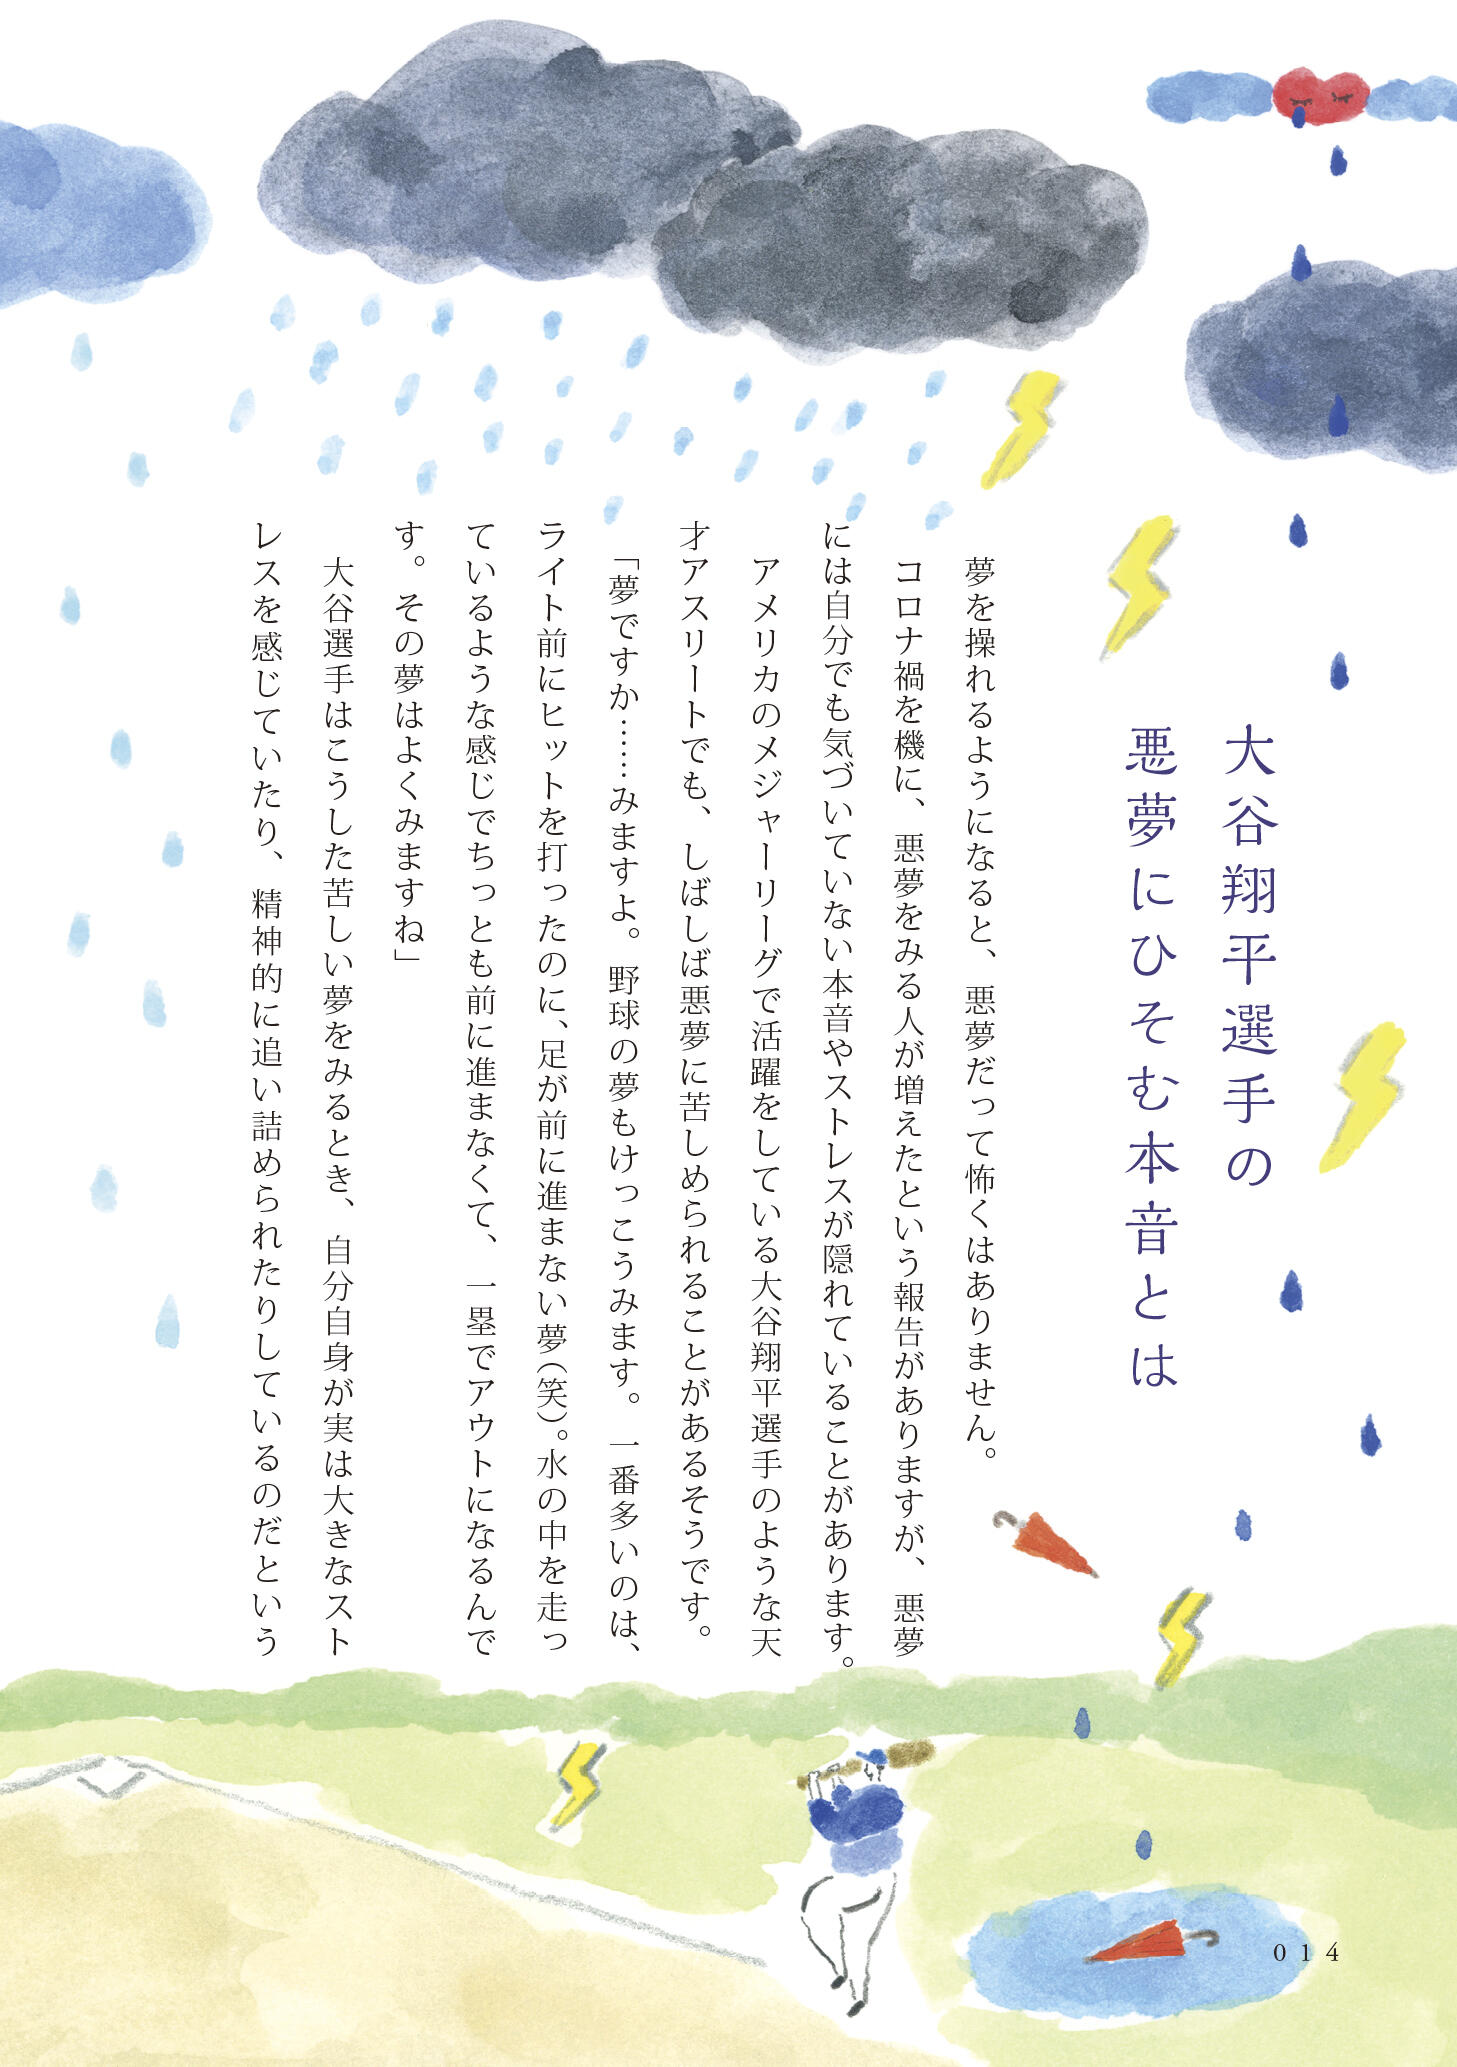 大谷翔平選手の
悪夢にひそむ本音とは
夢を操れるようになると、悪夢だって怖くはありません。
コロナ禍を機に、悪夢をみる人が増えたという報告がありますが、悪夢
には自分でも気づいていない本音やストレスが隠れていることがあります。
アメリカのメジャーリーグで活躍をしている大谷翔平選手のような天
才アスリートでも、しばしば悪夢に苦しめられることがあるそうです。
「夢ですか……みますよ。野球の夢もけっこうみます。一番多いのは、
ライト前にヒットを打ったのに、足が前に進まない夢（笑）。水の中を走っ
ているような感じでちっとも前に進まなくて、一塁でアウトになるんで
す。その夢はよくみますね」
大谷選手はこうした苦しい夢をみるとき、自分自身が実は大きなスト
レスを感じていたり、精神的に追い詰められたりしているのだという
014